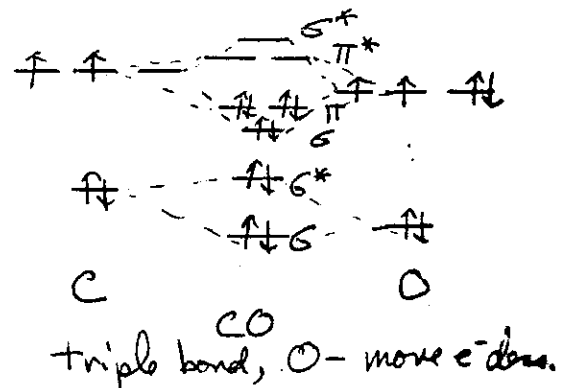 σ*
π*
π
σ
σ*
σ
C
O
CO
triple bond, O - more e⁻ dens.